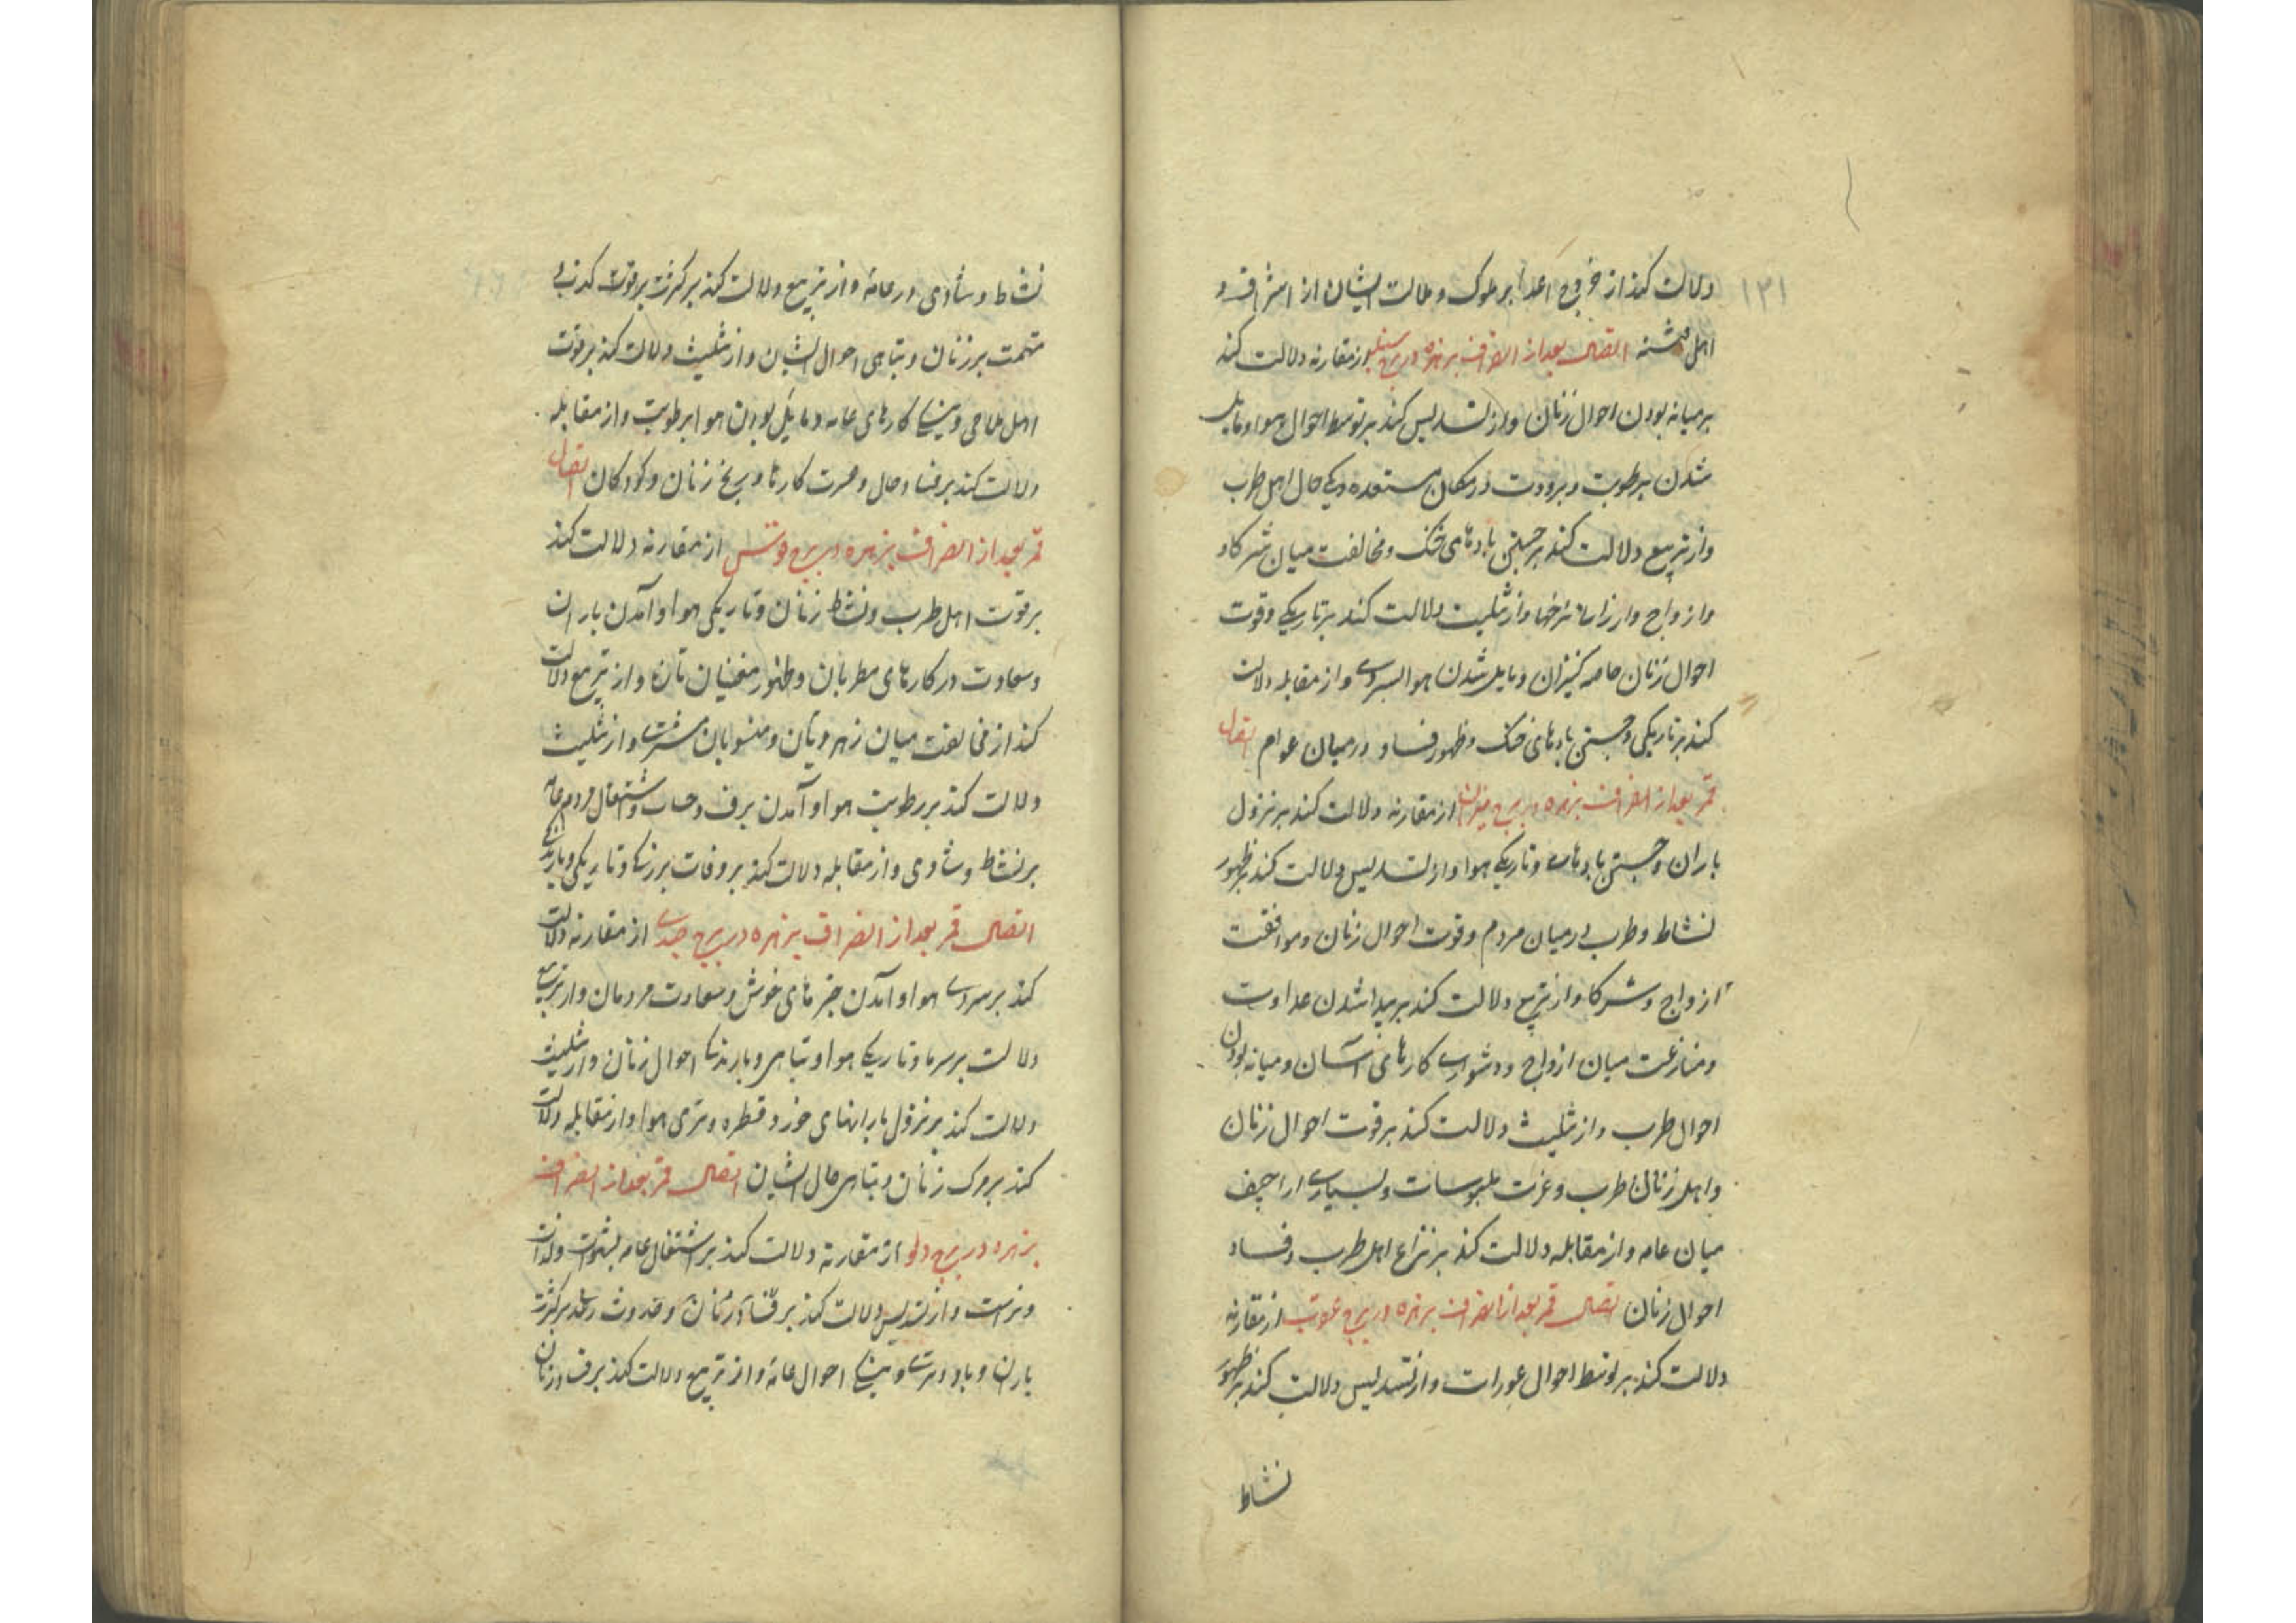 ۱۳۱
دلالت کند از خروج اعدا بر ملوک و ملالت ایشان از اشراف و
اهل اتصال بعد از انصراف بزهره در برج سنبله از مقارنه دلالت کند
بر میانه بودن احوال زنان و از تسدیس کند بر توسط احوال هوا و مایل
شدن برطوبت و برودت در مکان مستعده و نیکی حال اهل طرب
و از تربیع دلالت کند بر جستن بادهای خنک و مخالفت میان شرکا و
و ازواج و ارزانی نرخها و از تثلیث دلالت کند بر تاریکی و قوت
احوال زنان خاصه کنیزان و مایل شدن هوا بسردی و از مقابله دلالت
کند بر تاریکی و جستن بادهای خنک و ظهور فساد در میان عوام اتصال
قمر بعد از انصراف بزهره در برج میزان از مقارنه دلالت کند بر نزول
باران و جستن بادهای و تاریکی هوا و از تسدیس دلالت کند بر ظهور
نشاط و طرب در میان مردم و قوت احوال زنان و موافقت
ازواج و شرکا و از تربیع دلالت کند بر پیدا شدن عداوت
و منازعت میان ازواج و دشواری کارهای آسان و میانه بودن
احوال طرب و از تثلیث دلالت کند بر قوت احوال زنان
و اهل زنان طرب و عزت ملبوسات و بسیاری اراجیف
میان عامه و از مقابله دلالت کند بر نزاع اهل طرب و فساد
احوال زنان اتصال قمر بعد از انصراف بزهره در برج عقرب از مقارنه
دلالت کند بر توسط احوال عورات و از تسدیس دلالت کند بر ظهور
نشاط
نشاط و شادی در عامه و از تربیع دلالت کند بر کثرت برقوت
تهمت بر زنان و تباهی احوال ایشان و از تثلیث دلالت کند بر قوت
اهل ملاحی و کارهای عامه و مایل بودن هوا برطوبت و از مقابله
دلالت کند بر فساد حال و عسرت کارها و رنج زنان و کودکان اتصال
قمر بعد از انصراف بزهره در برج قوس از مقارنه دلالت کند
بر قوت اهل طرب و نشاط زنان و تاریکی هوا و آمدن باران
و سعادت در کارهای مطربان و ظهور مغنیان تازه و از تربیع دلالت
کند از مخالفت میان زهره و تان و منسوبان مشتری و از تثلیث
دلالت کند بر رطوبت هوا و آمدن برف و سحاب و اشتغال مردم عامه
بر نشاط و شادی و از مقابله دلالت کند بر وفات بزرگان و تاریکی و بارندگی
اتصال قمر بعد از انصراف بزهره در برج جدی از مقارنه دلالت
کند بر سردی هوا و آمدن خبرهای خوش و سعادت مردمان و از تربیع
دلالت بر سرما و تاریکی هوا و تباهی و بارندگی احوال زنان و از تثلیث
دلالت کند بر نزول بارانهای خورد قطره و تری هوا و از مقابله دلالت
کند بر مرگ زنان و تباهی حال ایشان اتصال قمر بعد از انصراف
بزهره در برج دلو از مقارنه دلالت کند بر اشتغال عامه بشهوت و لذات
و از تسدیس دلالت کند بر زنان و حدوث رعد بر کثرت
باران و باد و تری و نیکی احوال عامه و از تربیع دلالت کند برف و زنان